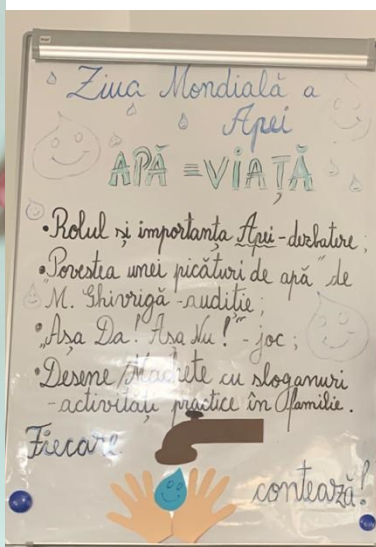 Ziua Mondială a
Apei
APĂ = VIAȚĂ
•Rolul și importanța Apei - dezbatere;
•„Povestea unei picături de apă" de
M. Ghivrigă - audiție;
•„Așa Da! Așa Nu!" - joc;
•Desene/Machete cu sloganuri
- activități practice în familie.
Fiecare
contează!